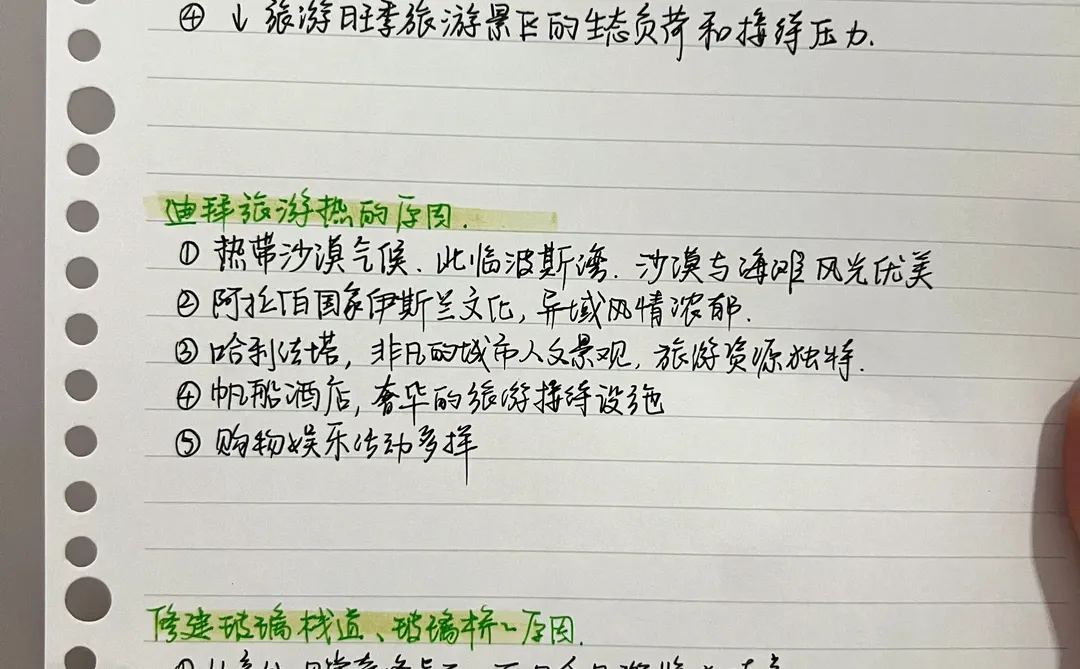 ④ ↓ 旅游旺季旅游景区的生态负荷和接待压力.
迪拜旅游热的原因.
① 热带沙漠气候、北临波斯湾. 沙漠与海滩风光优美
② 阿拉伯国家伊斯兰文化, 异域风情浓郁.
③ 哈利法塔, 非凡的城市人文景观, 旅游资源独特.
④ 帆船酒店, 奢华的旅游接待设施
⑤ 购物娱乐活动多样
修建玻璃栈道、玻璃桥~原因.